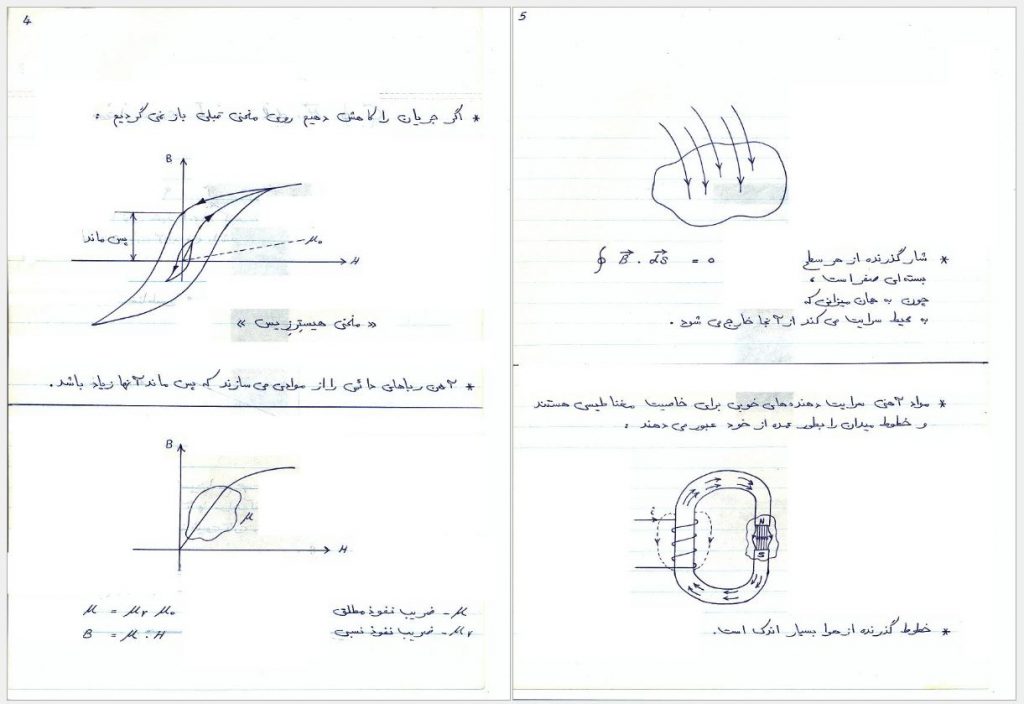 4
* اگر جریان را کاهش دهیم روی منحنی قبلی باز نمی گردیم :
B
پس ماند
μ₀
H
« منحنی هیسترزیس »
* آهن رباهای دائمی را از موادی می سازند که پس ماند آنها زیاد باشد .
B
μ
H
μ = μr μ₀
μ - ضریب نفوذ مطلق
B = μ . H
μr - ضریب نفوذ نسبی
5
* شار گذرنده از هر سطح
∮ B⃗ . ds⃗ = 0
بسته ای صفر است ،
چون به همان میزانی که
به محیط سرایت می کند از آنجا خارج می شود .
* مواد آهنی سرایت دهنده های خوبی برای خاصیت مغناطیسی هستند
و خطوط میدان را بطور عمده از خود عبور می دهند :
i
N
S
* خطوط گذرنده از هوا بسیار اندک است .